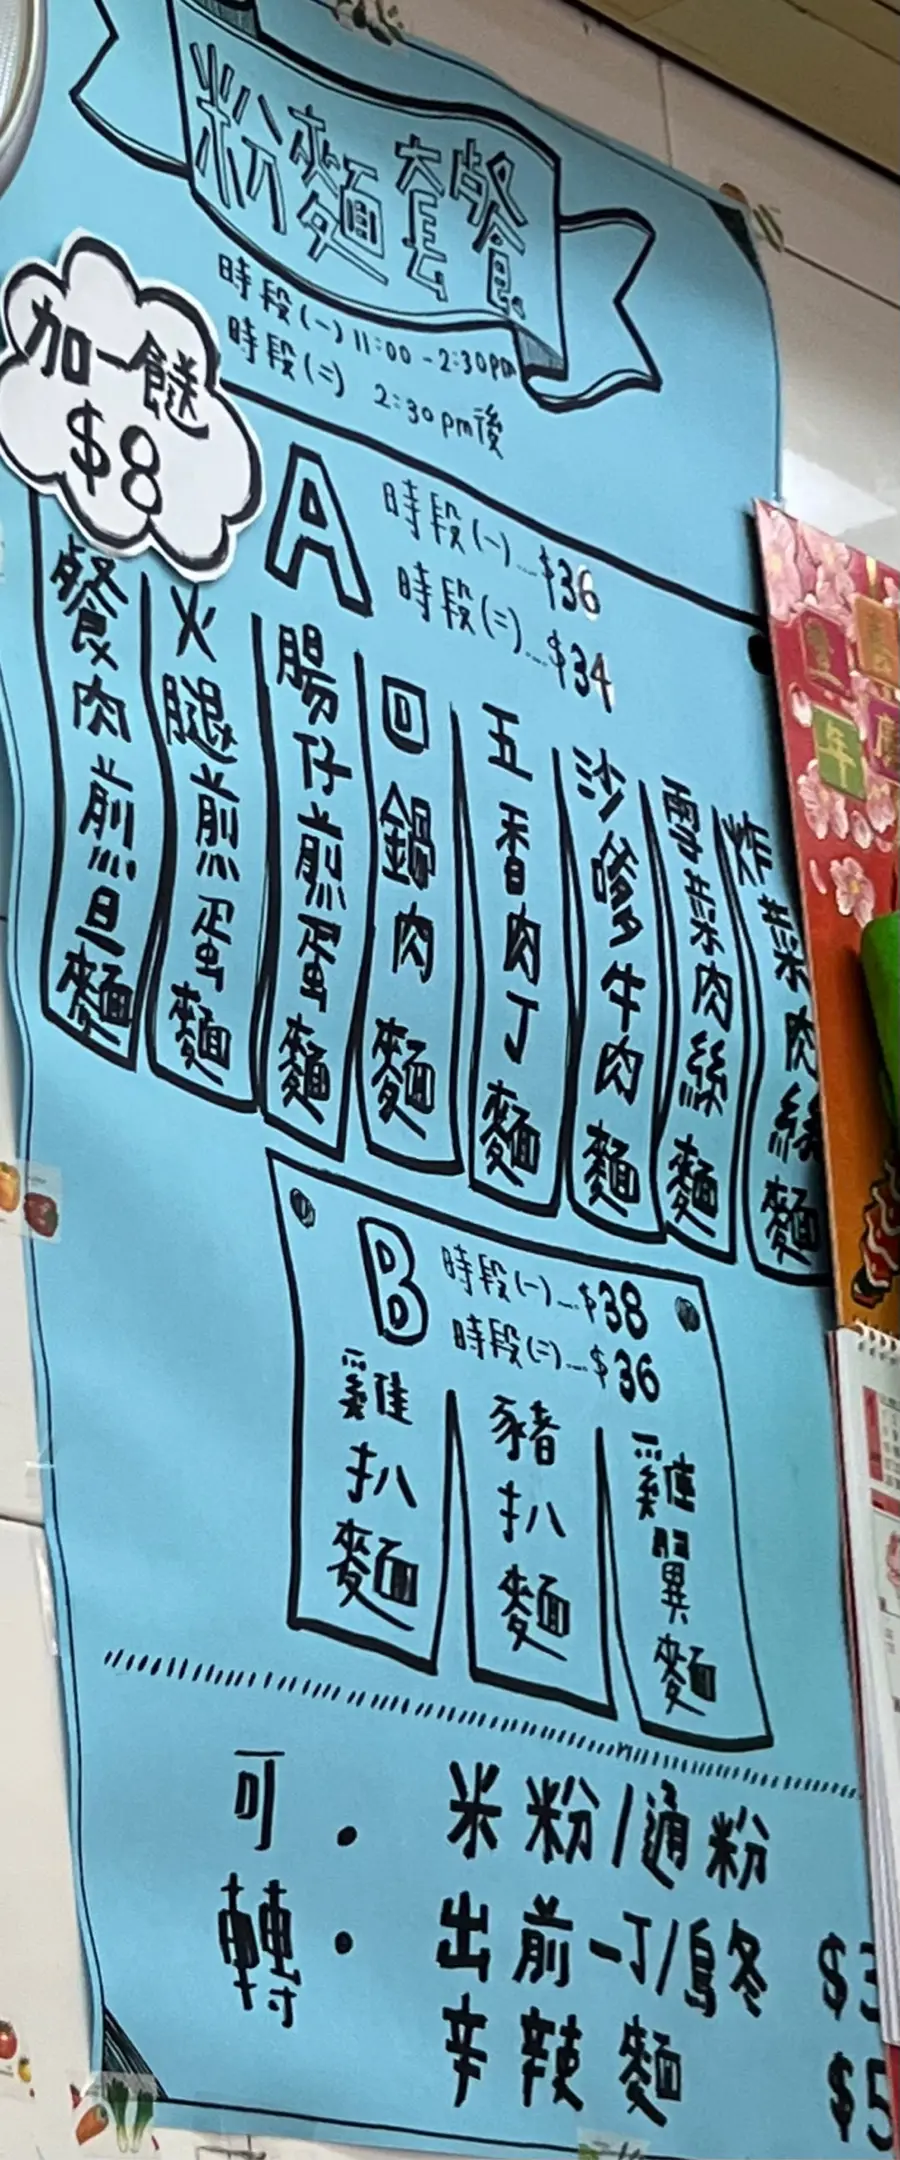 粉麵套餐
時段(一) 11:00-2:30pm
時段(二) 2:30pm後
加一餸
$8
A
時段(一)...$36
時段(二)...$34
餐肉煎旦麵
火腿煎蛋麵
腸仔煎蛋麵
回鍋肉麵
五香肉丁麵
沙嗲牛肉麵
雪菜肉絲麵
炸菜肉絲麵
B
時段(一)...$38
時段(二)...$36
雞扒麵
豬扒麵
雞翼麵
可轉
· 米粉/通粉
· 出前一丁/烏冬 $3
辛辣麵 $5